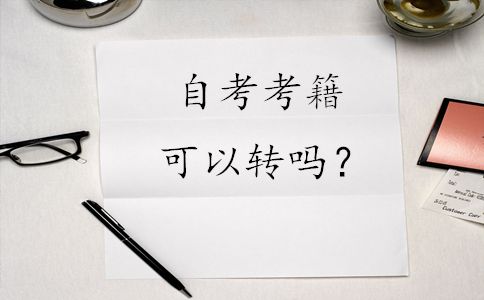 自考考籍
可以转吗？
Customer Copy